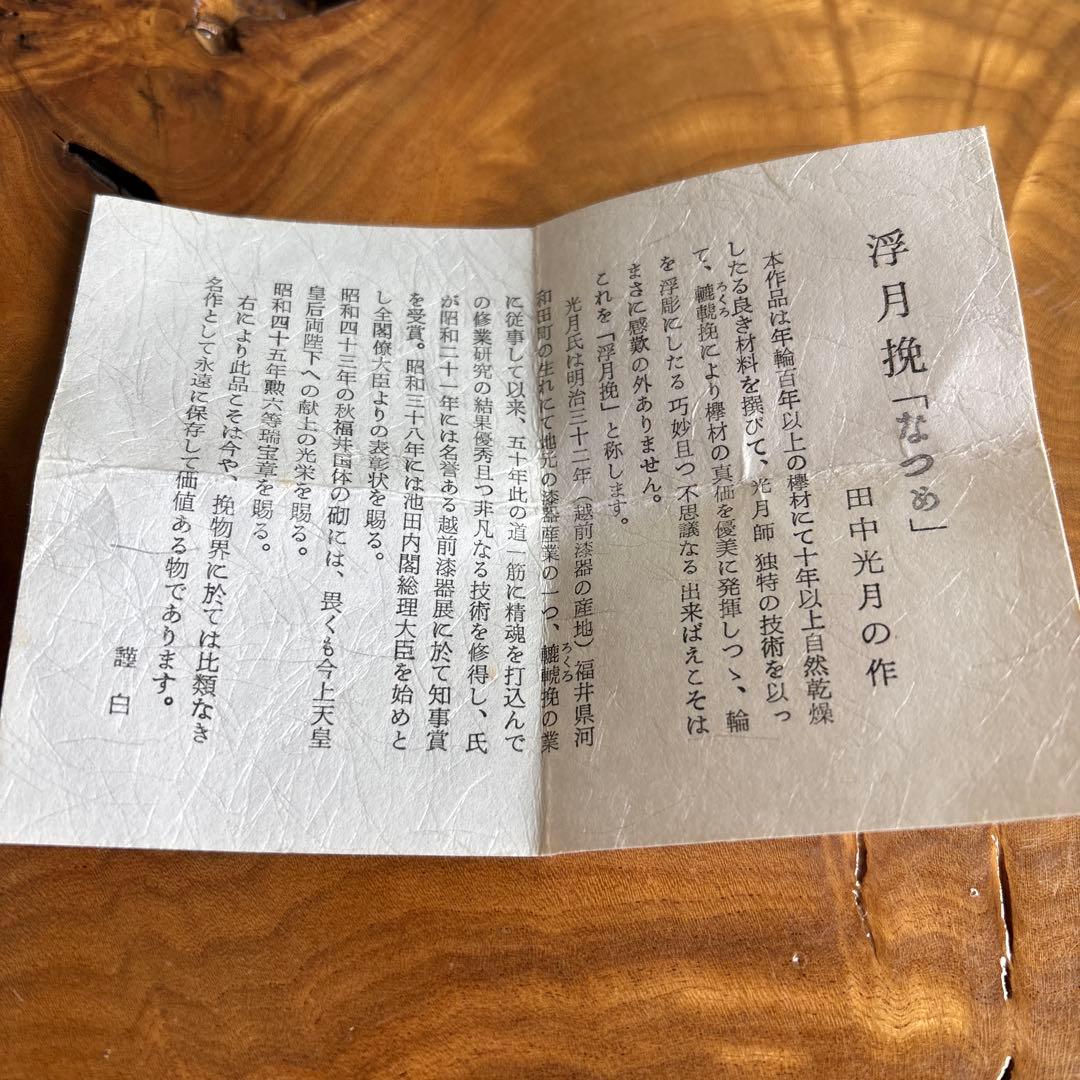 浮月挽「なつめ」
田中光月の作
本作品は年輪百年以上の欅材にて十年以上自然乾燥
したる良き材料を撰びて、光月師 独特の技術を以っ
て、轆轤挽により欅材の真価を優美に発揮しつゝ、輪
ろくろ
を浮彫にしたる 巧妙且つ不思議なる 出来ばえこそは
まさに感歎の外ありません。
これを「浮月挽」と称します。
光月氏は明治三十二年（越前漆器の産地）福井県河
和田町の生れにて地元の漆器産業の一つ、轆轤挽の業
ろくろ
に従事して以来、五十年此の道一筋に精魂を打込んで
の修業研究の結果優秀且つ非凡なる技術を修得し、氏
が昭和二十一年には名誉ある越前漆器展に於て知事賞
を受賞。昭和三十八年には池田内閣総理大臣を始めと
し全閣僚大臣よりの表彰状を賜る。
昭和四十三年の秋福井国体の砌には、畏くも今上天皇
皇后両陛下への献上の光栄を賜る。
昭和四十五年勲六等瑞宝章を賜る。
右により此品こそは今や、挽物界に於ては比類なき
名作として永遠に保存して価値ある物であります。
謹白